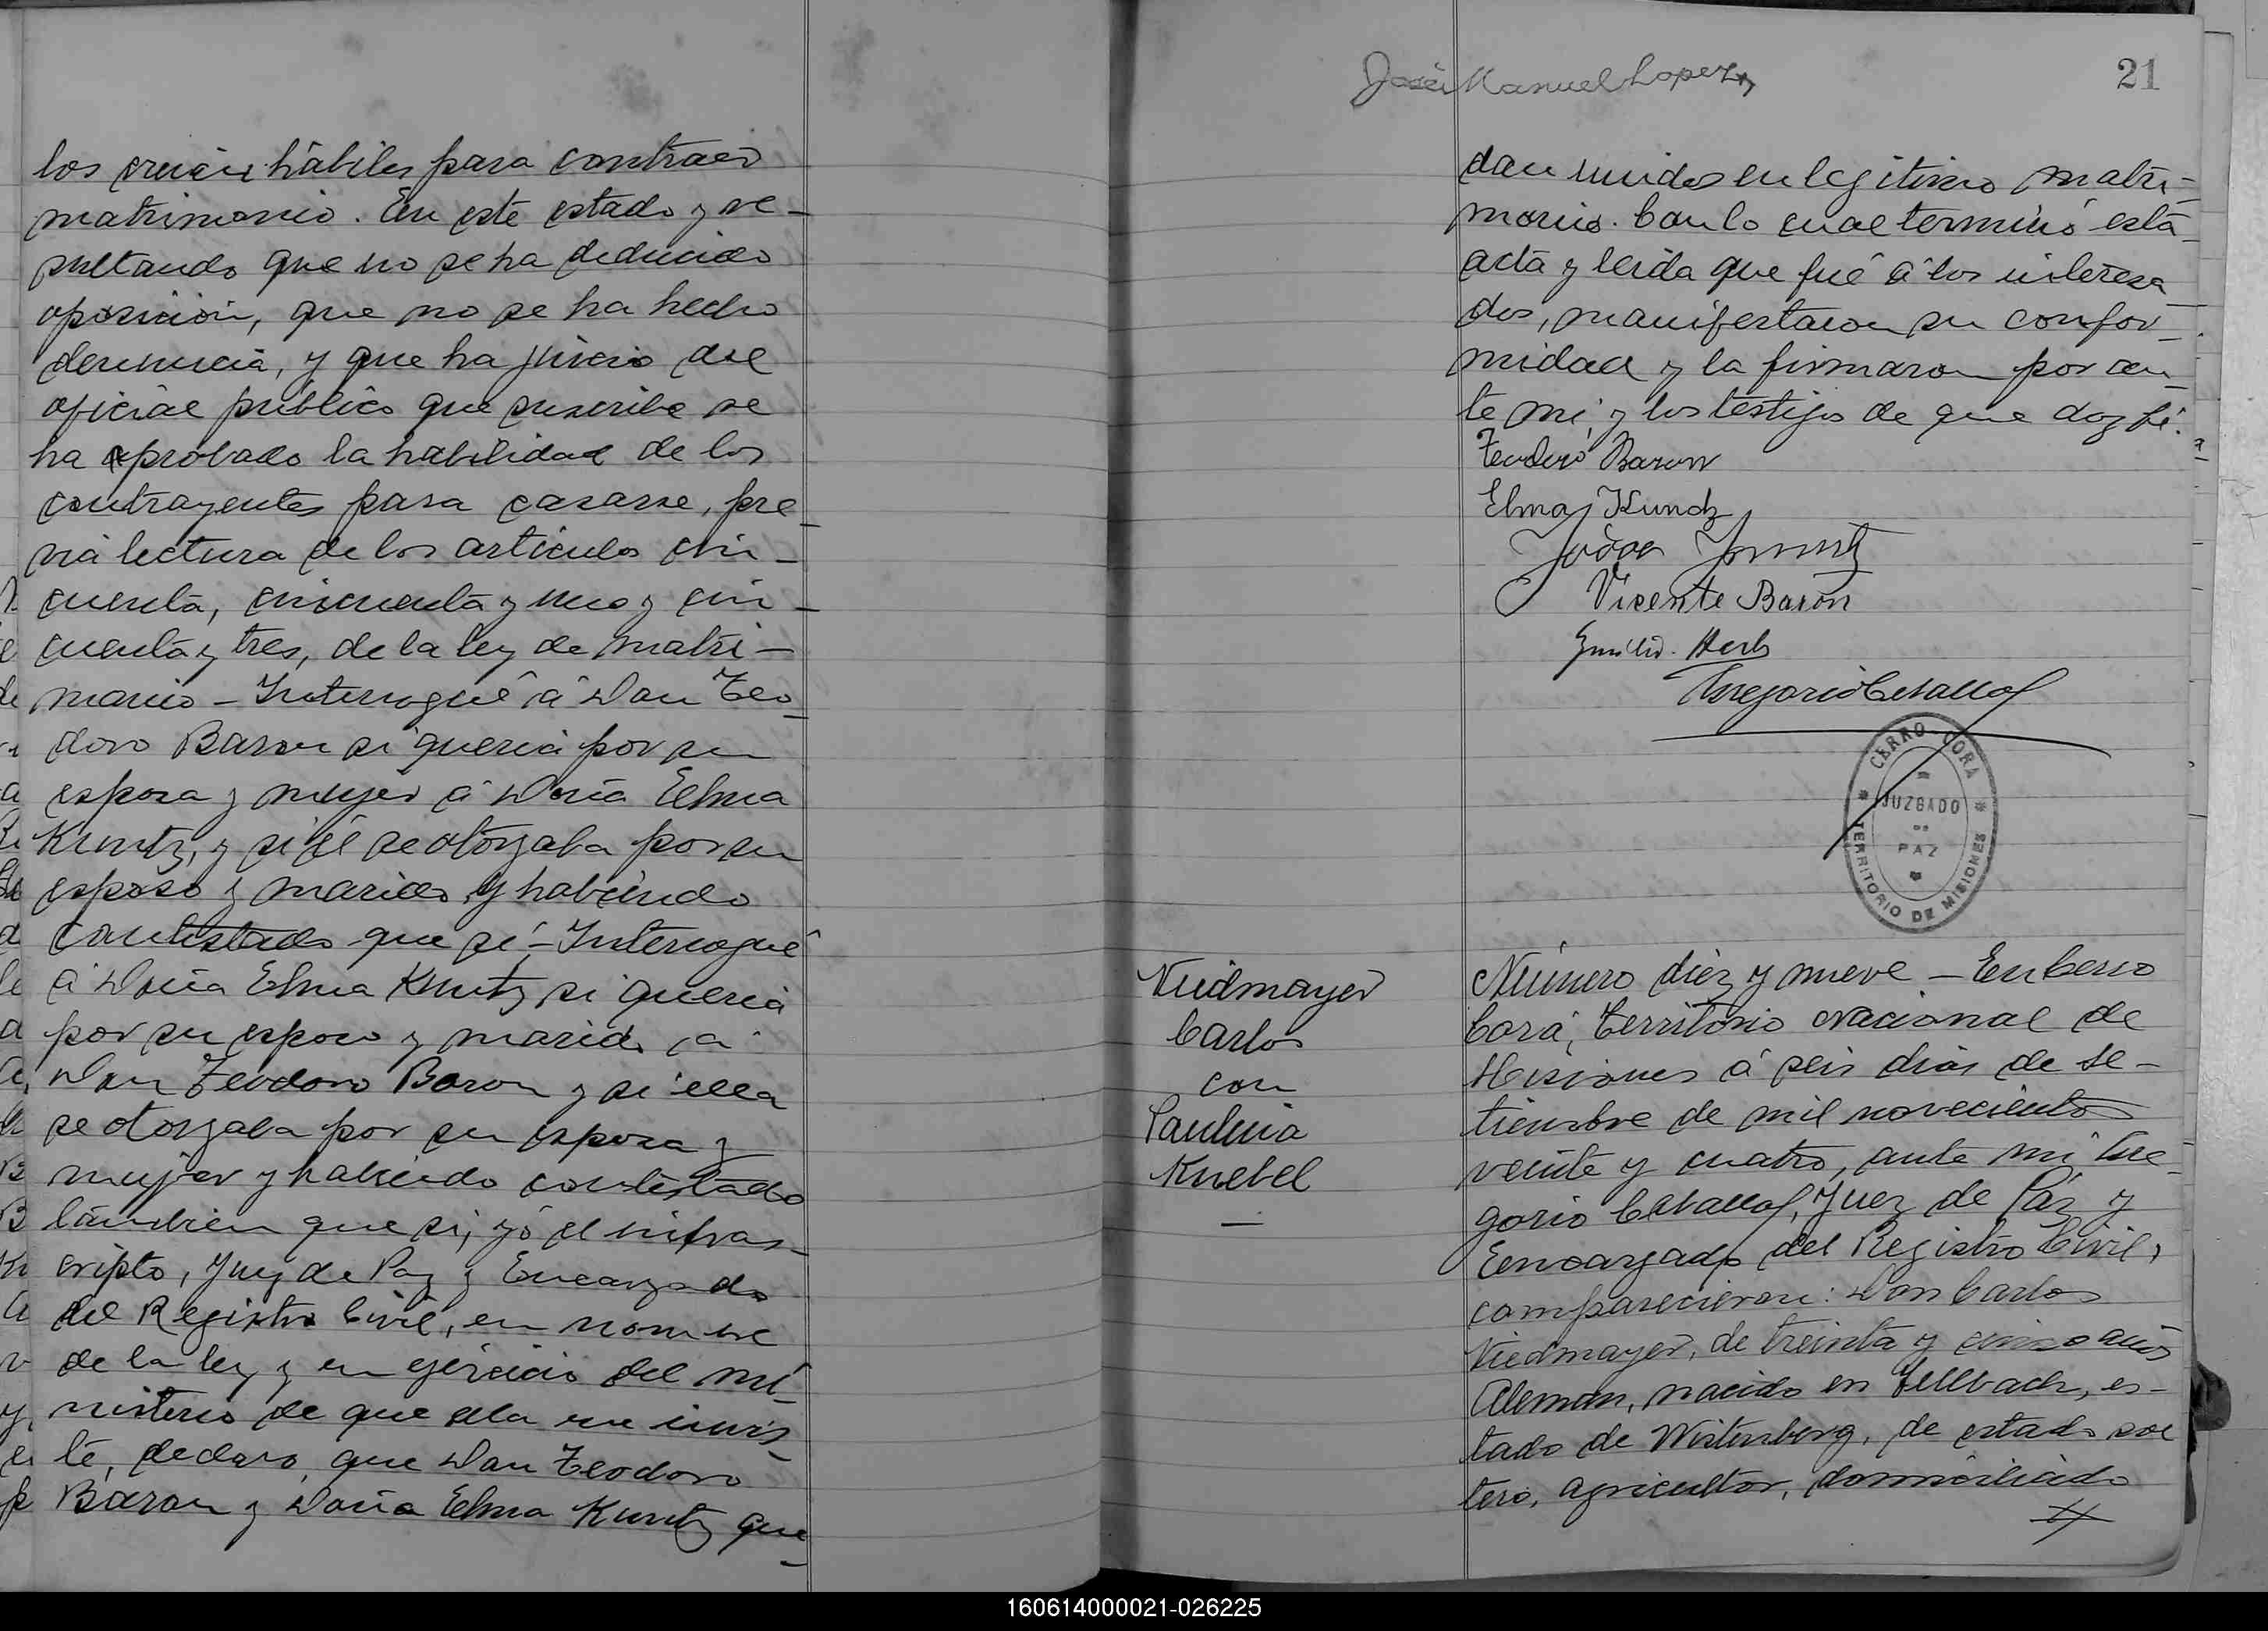 los creían hábiles para contraer
matrimonio. En este estado y re-
sultando que no se ha deducido
oposición, que no se ha hecho
denuncia, y que ha juicio del
oficial público que suscribe se
ha aprobado la habilidad de los
contrayentes para casarse, pre-
via lectura de los artículos cin-
cuenta, cincuenta y uno y cin-
cuenta y tres, de la ley de matri-
monio - Interrogué á Don Teo-
doro Baron si queria por su
esposa y mujer á Doña Elma
Kuntz, y si él se otorgaba por su
esposo y marido y habiendo
contestado que sí - Interrogué
á Doña Elma Kuntz si queria
por su esposo y marido á
Don Teodoro Baron y si ella
se otorgaba por su esposa y
mujer y habiendo contestado
tambien que si, yó el infras-
cripto, Juez de Paz y Encargado
del Registro Civil, en nombre
de la ley y en ejercicio del mi-
nisterio de que ella me invis-
te, declaro, que Don Teodoro
Baron y Doña Elma Kuntz que-
José Manuel Lopez
21
dan unidos en legitimo matri-
monio. Con lo cual terminó esta
acta y leida que fué á los interesa-
dos, manifestaron su confor-
midad y la firmaron por an-
te mi, y los testigos de que doy fé.
Teodoro Baron
Elma Kuntz
Vicente Barón
Emilio Herb
Gregorio Ceballos
CERRO CORA
JUZGADO
DE
PAZ
TERRITORIO DE MISIONES
Viedmayer
Carlos
con
Paulina
Knebel
Número diez y nueve - En Cerro
Corá, Territorio Nacional de
Misiones á seis dias de Se-
tiembre de mil novecientos
veinte y cuatro, ante mi Gre-
gorio Ceballos, Juez de Páz y
Encargado del Registro Civil,
comparecieron: Don Carlos
Viedmayer, de treinta y cinco años
Aleman, nacido en Fellbach, es-
tado de Wistenberg, de estado sol
tero, agricultor, domiciliado